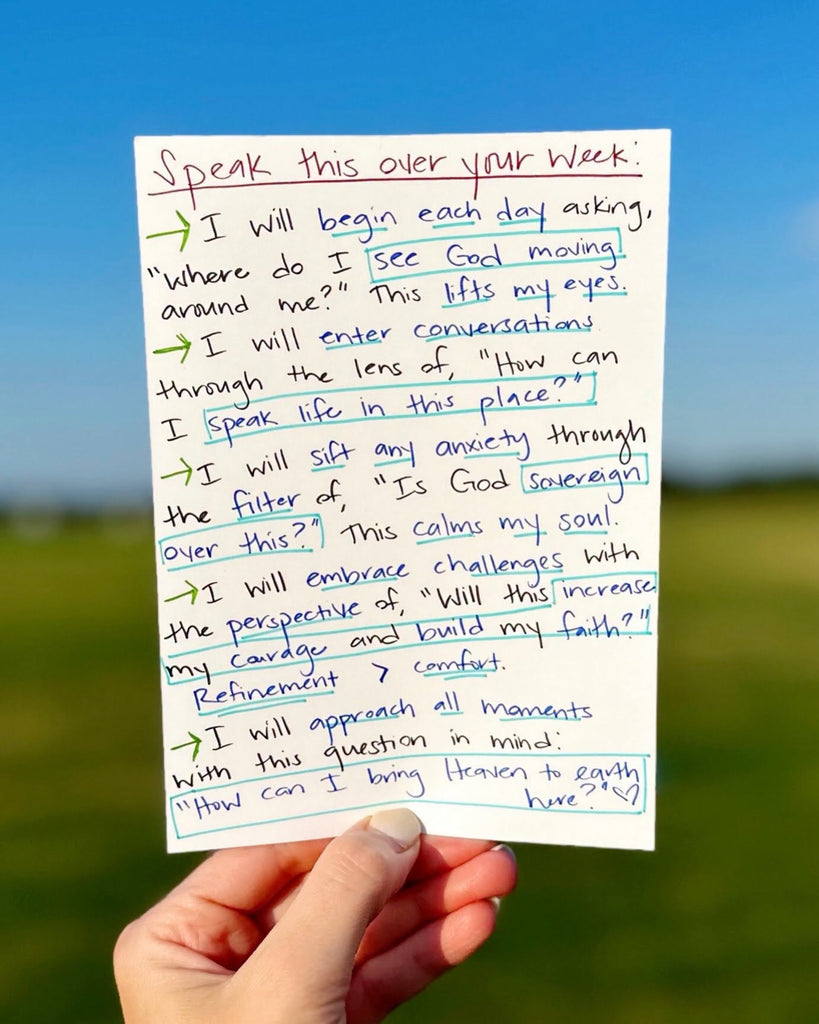 Speak this over your week:
→ I will begin each day asking,
"Where do I see God moving
around me?" This lifts my eyes.
→ I will enter conversations
through the lens of, "How can
I speak life in this place?"
→ I will sift any anxiety through
the filter of, "Is God sovereign
over this?" This calms my soul.
→ I will embrace challenges with
the perspective of, "Will this increase
my courage and build my faith?"
Refinement > comfort.
→ I will approach all moments
with this question in mind:
"How can I bring Heaven to earth
here?" ♡